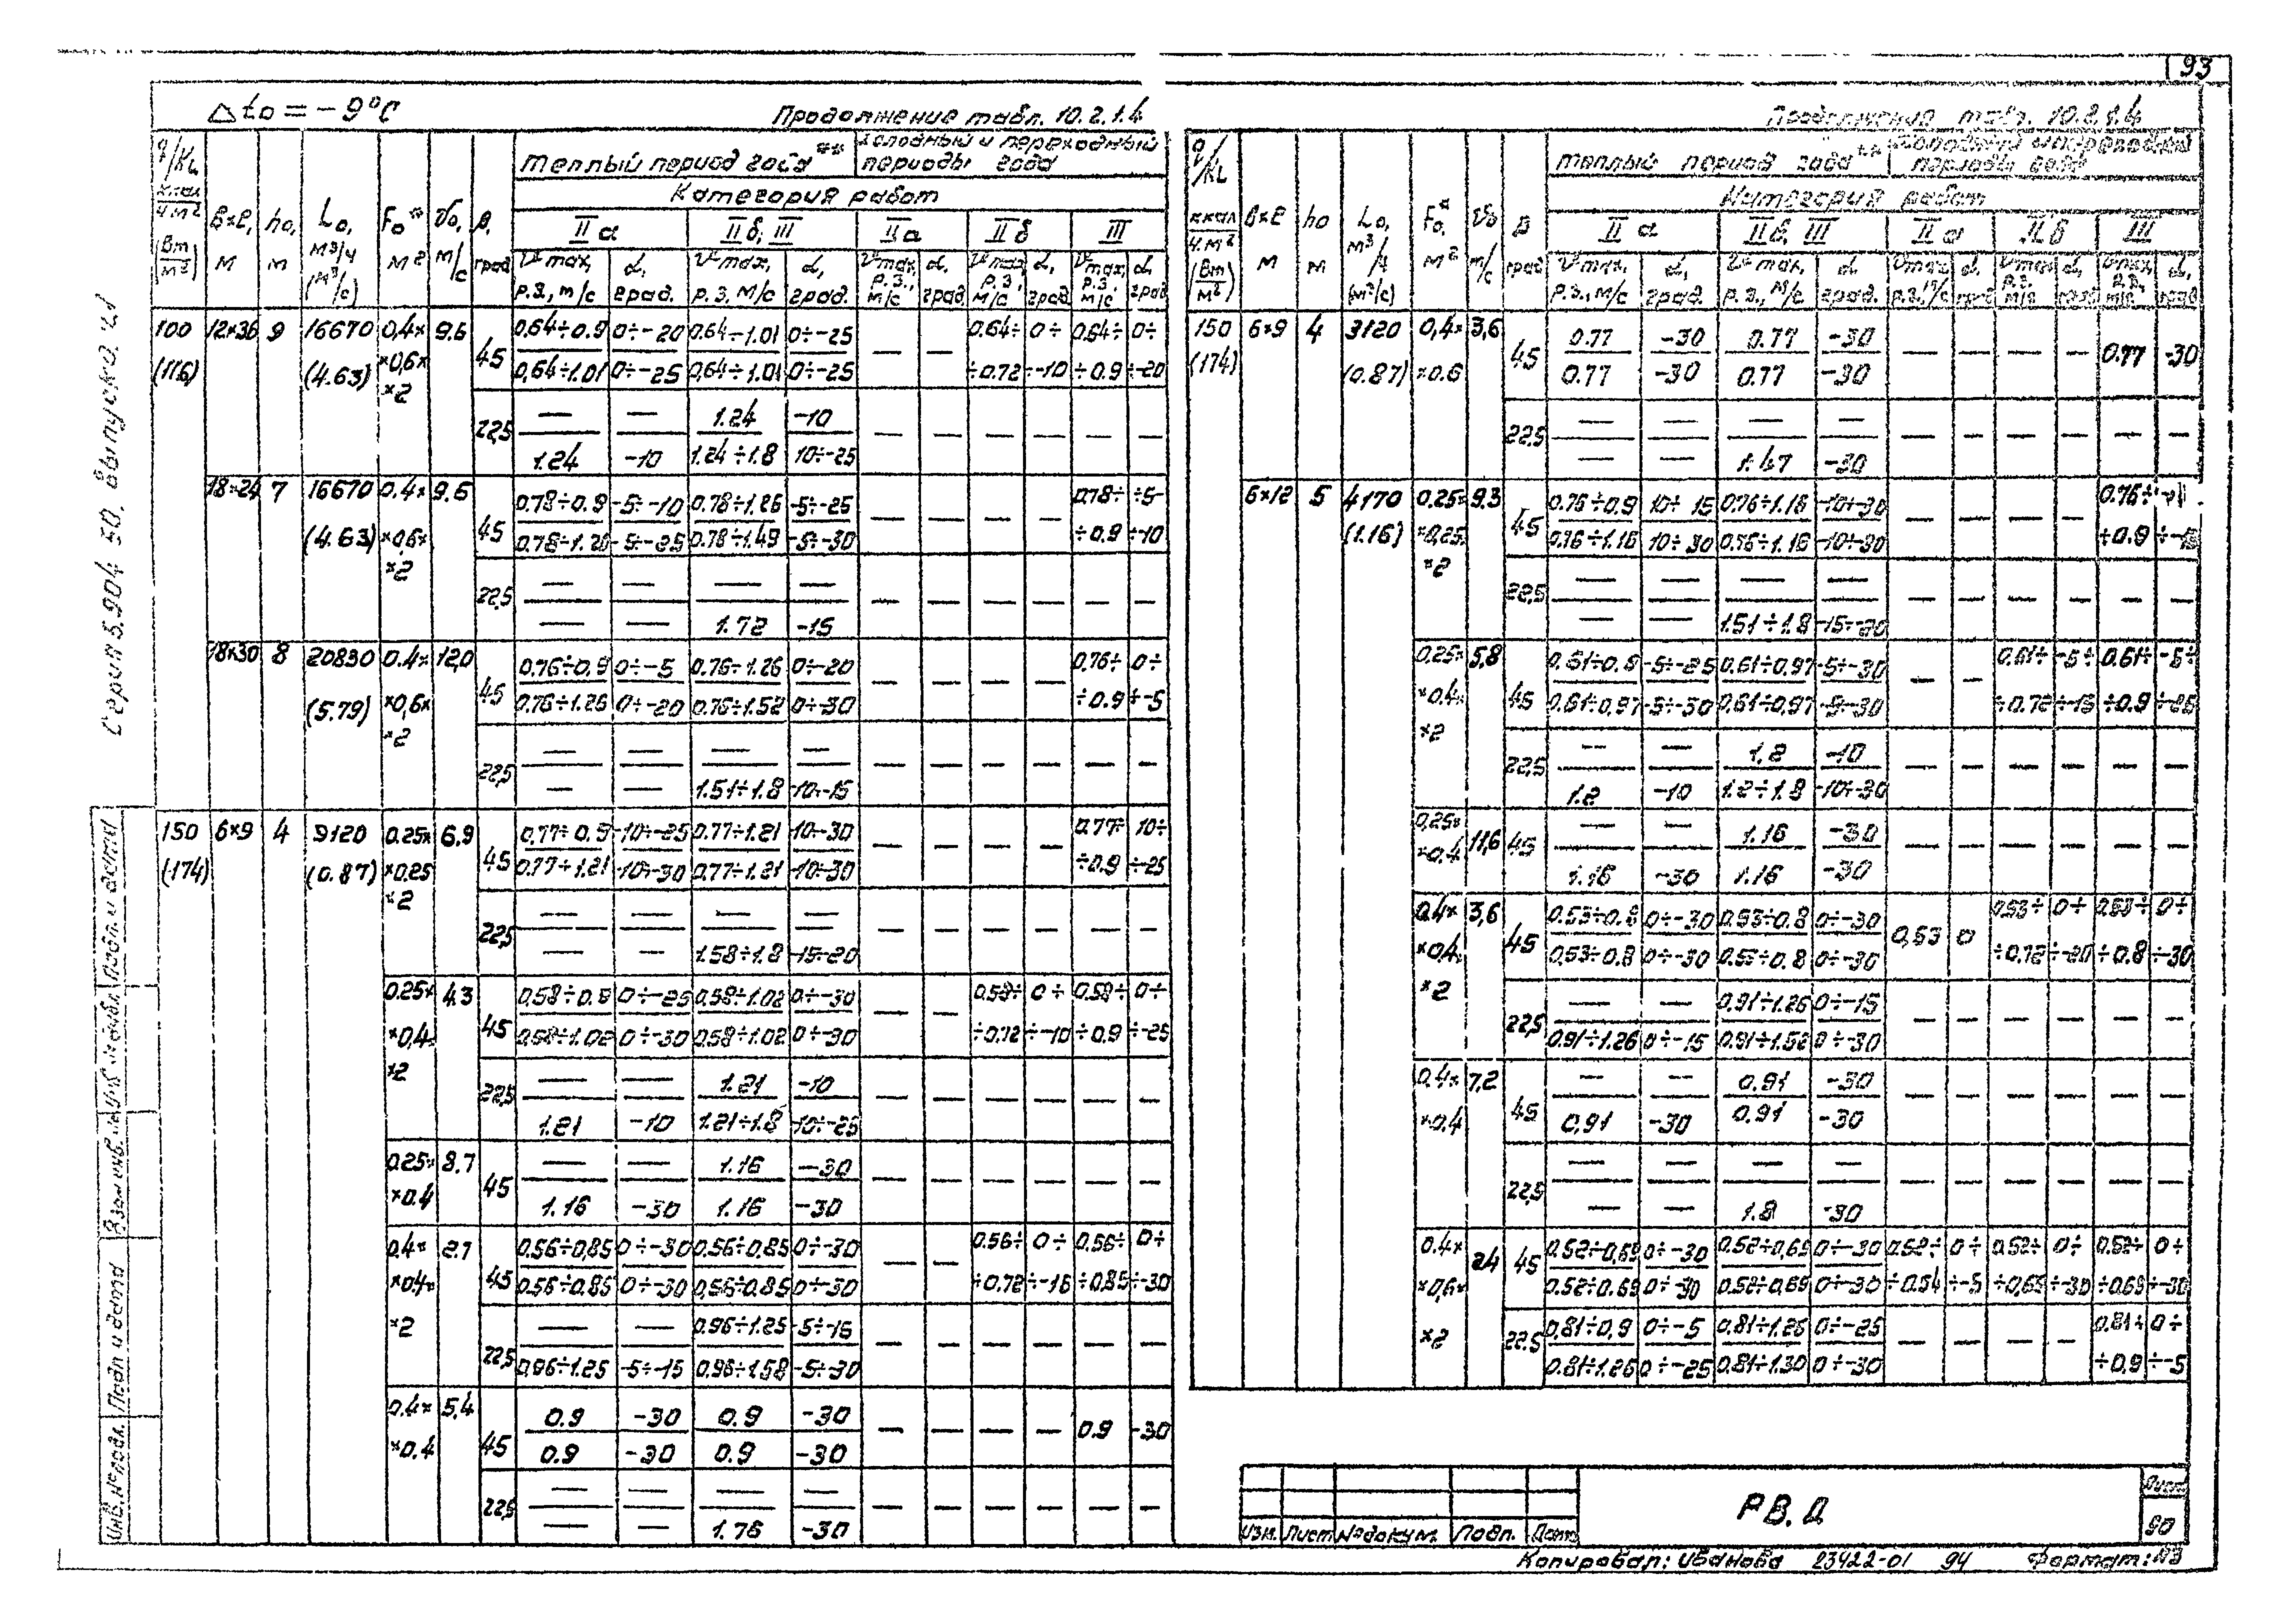 93
Δto = -9°C
Продолжение табл. 10.2.1.4
q/KL ккал/ч.м² (Вт/м²) | в×ℓ, м | ho, м | Lo, м³/ч (м³/с) | Fo*, м² | Vo, м/с | β, град | Теплый период года** | Холодный и переходный периоды года
Категория работ
IIа | IIб, III | IIа | IIб | III
Vmax, р.з., м/с | α, град. | Vmax, р.з., м/с | α, град. | Vmax, р.з., м/с | α, град. | Vmax, р.з., м/с | α, град | Vmax, р.з., м/с | α, град
100 (116) | 12×36 | 9 | 16670 (4.63) | 0,4××0,6××2 | 9.6 | 45 | 0,64÷0.9 | 0÷-20 | 0,64÷1.01 | 0÷-25 | — | — | 0.64÷÷0.72 | 0÷÷-10 | 0,64÷÷0.9 | 0÷÷-20
0,64÷1.01 | 0÷-25 | 0,64÷1.01 | 0÷-25
22,5 | — | — | 1.24 | -10 | — | — | — | — | — | —
1.24 | -10 | 1.24÷1.8 | 10÷-25
18×24 | 7 | 16670 (4.63) | 0.4××0,6××2 | 9.6 | 45 | 0.78÷0.9 | -5÷-10 | 0.78÷1.26 | -5÷-25 | — | — | — | — | 0.78÷÷0.9 | ÷5-÷-10
0.78÷1.26 | -5÷-25 | 0.78÷1.49 | -5÷-30
22,5 | — | — | — | — | — | — | — | — | — | —
— | — | 1.72 | -15
18×30 | 8 | 20830 (5.79) | 0.4××0,6××2 | 12,0 | 45 | 0.76÷0,9 | 0÷-5 | 0.76÷1.26 | 0÷-20 | — | — | — | — | 0,76÷÷0.9 | 0÷÷-5
0.76÷1.26 | 0÷-20 | 0.76÷1.52 | 0÷-30
22,5 | — | — | — | — | — | — | — | — | — | —
— | — | 1.51÷1.8 | -10÷-15
150 (174) | 6×9 | 4 | 3120 (0.87) | 0.25××0.25×2 | 6.9 | 45 | 0,77÷0.9 | -10÷-25 | 0.77÷1.21 | 10÷-30 | — | — | — | — | 0.77÷÷0.9 | 10÷÷-25
0.77÷1.21 | -10÷-30 | 0.77÷1.21 | -10÷-30
22,5 | — | — | — | — | — | — | — | — | — | —
— | — | 1.58÷1.8 | -15÷-20
0.25××0,4××2 | 4.3 | 45 | 0,58÷0.9 | 0÷-25 | 0,58÷1.02 | 0÷-30 | — | — | 0.58÷÷0.72 | 0÷÷-10 | 0.58÷÷0.9 | 0÷÷-25
0.58÷1.02 | 0÷-30 | 0.58÷1.02 | 0÷-30
22,5 | — | — | 1.21 | -10 | — | — | — | — | — | —
1.21 | -10 | 1.21÷1.8 | -10÷-25
0.25××0.4 | 8.7 | 45 | — | — | 1.16 | -30 | — | — | — | — | — | —
1.16 | -30 | 1.16 | -30
0.4××0.4××2 | 2.7 | 45 | 0.56÷0,85 | 0÷-30 | 0.56÷0.85 | 0÷-30 | — | — | 0.56÷÷0.72 | 0÷÷-15 | 0.56÷÷0.85 | 0÷÷-30
0.56÷0.85 | 0÷-30 | 0,56÷0.85 | 0÷-30
22,5 | — | — | 0.96÷1.25 | -5÷-15 | — | — | — | — | — | —
0,96÷1.25 | -5÷-15 | 0.96÷1.58 | -5÷-30
0.4××0.4 | 5,4 | 45 | 0.9 | -30 | 0.9 | -30 | — | — | — | — | 0.9 | -30
0.9 | -30 | 0.9 | -30
22,5 | — | — | — | — | — | — | — | — | — | —
— | — | 1.76 | -30
Продолжение табл. 10.2.1.4
q/KL ккал/ч.м² (Вт/м²) | в×ℓ м | ho м | Lo, м³/ч (м³/с) | Fo*, м² | Vo м/с | β град | Теплый период года** | Холодный и переходный периоды года
Категория работ
IIа | IIб, III | IIа | IIб | III
Vmax, р.з., м/с | α, град. | Vmax, р.з., м/с | α, град. | Vmax р.з., м/с | α, град | Vmax, р.з. м/с | α, град | Vmax, р.з., м/с | α, град
150 (174) | 6×9 | 4 | 3120 (0.87) | 0,4××0.6 | 3,6 | 45 | 0.77 | -30 | 0.77 | -30 | — | — | — | — | 0.77 | -30
0.77 | -30 | 0.77 | -30
22,5 | — | — | — | — | — | — | — | — | — | —
— | — | 1.47 | -30
6×12 | 5 | 4170 (1.16) | 0.25××0,25××2 | 9.3 | 45 | 0.76÷0.9 | 10÷15 | 0.76÷1.16 | -10÷-30 | — | — | — | — | 0.76÷÷0.9
0.76÷1.16 | 10÷30 | 0.76÷1.16 | -10÷-30
22,5 | — | — | — | — | — | — | — | — | — | —
— | — | 1.51÷1.8 | -15÷-20
0.25××0.4××2 | 5,8 | 45 | 0,61÷0.9 | -5÷-25 | 0,61÷0.97 | -5÷-30 | — | — | 0,61÷÷0.72 | -5÷÷-15 | 0.61÷÷0.9 | -5÷÷-25
0,61÷0,97 | -5÷-30 | 0,61÷0,97 | -5÷-30
22,5 | — | — | 1,2 | -10 | — | — | — | — | — | —
1.2 | -10 | 1.2÷1.8 | -10÷-30
0,25××0.4 | 11,6 | 45 | — | — | 1.16 | -30 | — | — | — | — | — | —
1.16 | -30 | 1.16 | -30
0.4××0,4××2 | 3,6 | 45 | 0.53÷0.8 | 0÷-30 | 0.53÷0.8 | 0÷-30 | 0,53 | 0 | 0.53÷÷0.72 | 0÷÷-20 | 0.53÷÷0.8 | 0÷÷-30
0,53÷0.8 | 0÷-30 | 0.53÷0.8 | 0÷-30
22,5 | — | — | 0.91÷1.26 | 0÷-15 | — | — | — | — | — | —
0.91÷1.26 | 0÷-15 | 0.91÷1.52 | 0÷-30
0.4××0.4 | 7,2 | 45 | — | — | 0.91 | -30 | — | — | — | — | — | —
0,91 | -30 | 0.91 | -30
22,5 | — | — | — | — | — | — | — | — | — | —
— | — | 1.8 | -30
0.4××0,6××2 | 2.4 | 45 | 0.52÷0,69 | 0÷-30 | 0.52÷0,69 | 0÷-30 | 0.52÷÷0.54 | 0÷÷-5 | 0.52÷÷0,69 | 0÷÷-30 | 0.52÷÷0.69 | 0÷÷-30
0.52÷0.69 | 0÷-30 | 0.52÷0,69 | 0÷-30
22.5 | 0,81÷0,9 | 0÷-5 | 0,81÷1.26 | 0÷-25 | — | — | — | — | 0.81÷÷0.9 | 0÷÷-5
0.81÷1.26 | 0÷-25 | 0.81÷1.30 | 0÷-30
Серия 5.904-50. Выпуск 0.
Инв.№ подл. | Подп и дата | Взам инв. | Подп. и дата
Изм. Лист № докум. Подп. Дата
РВ.Д
Лист
90
Копировал: Иванова 23422-01 94 Формат: А3